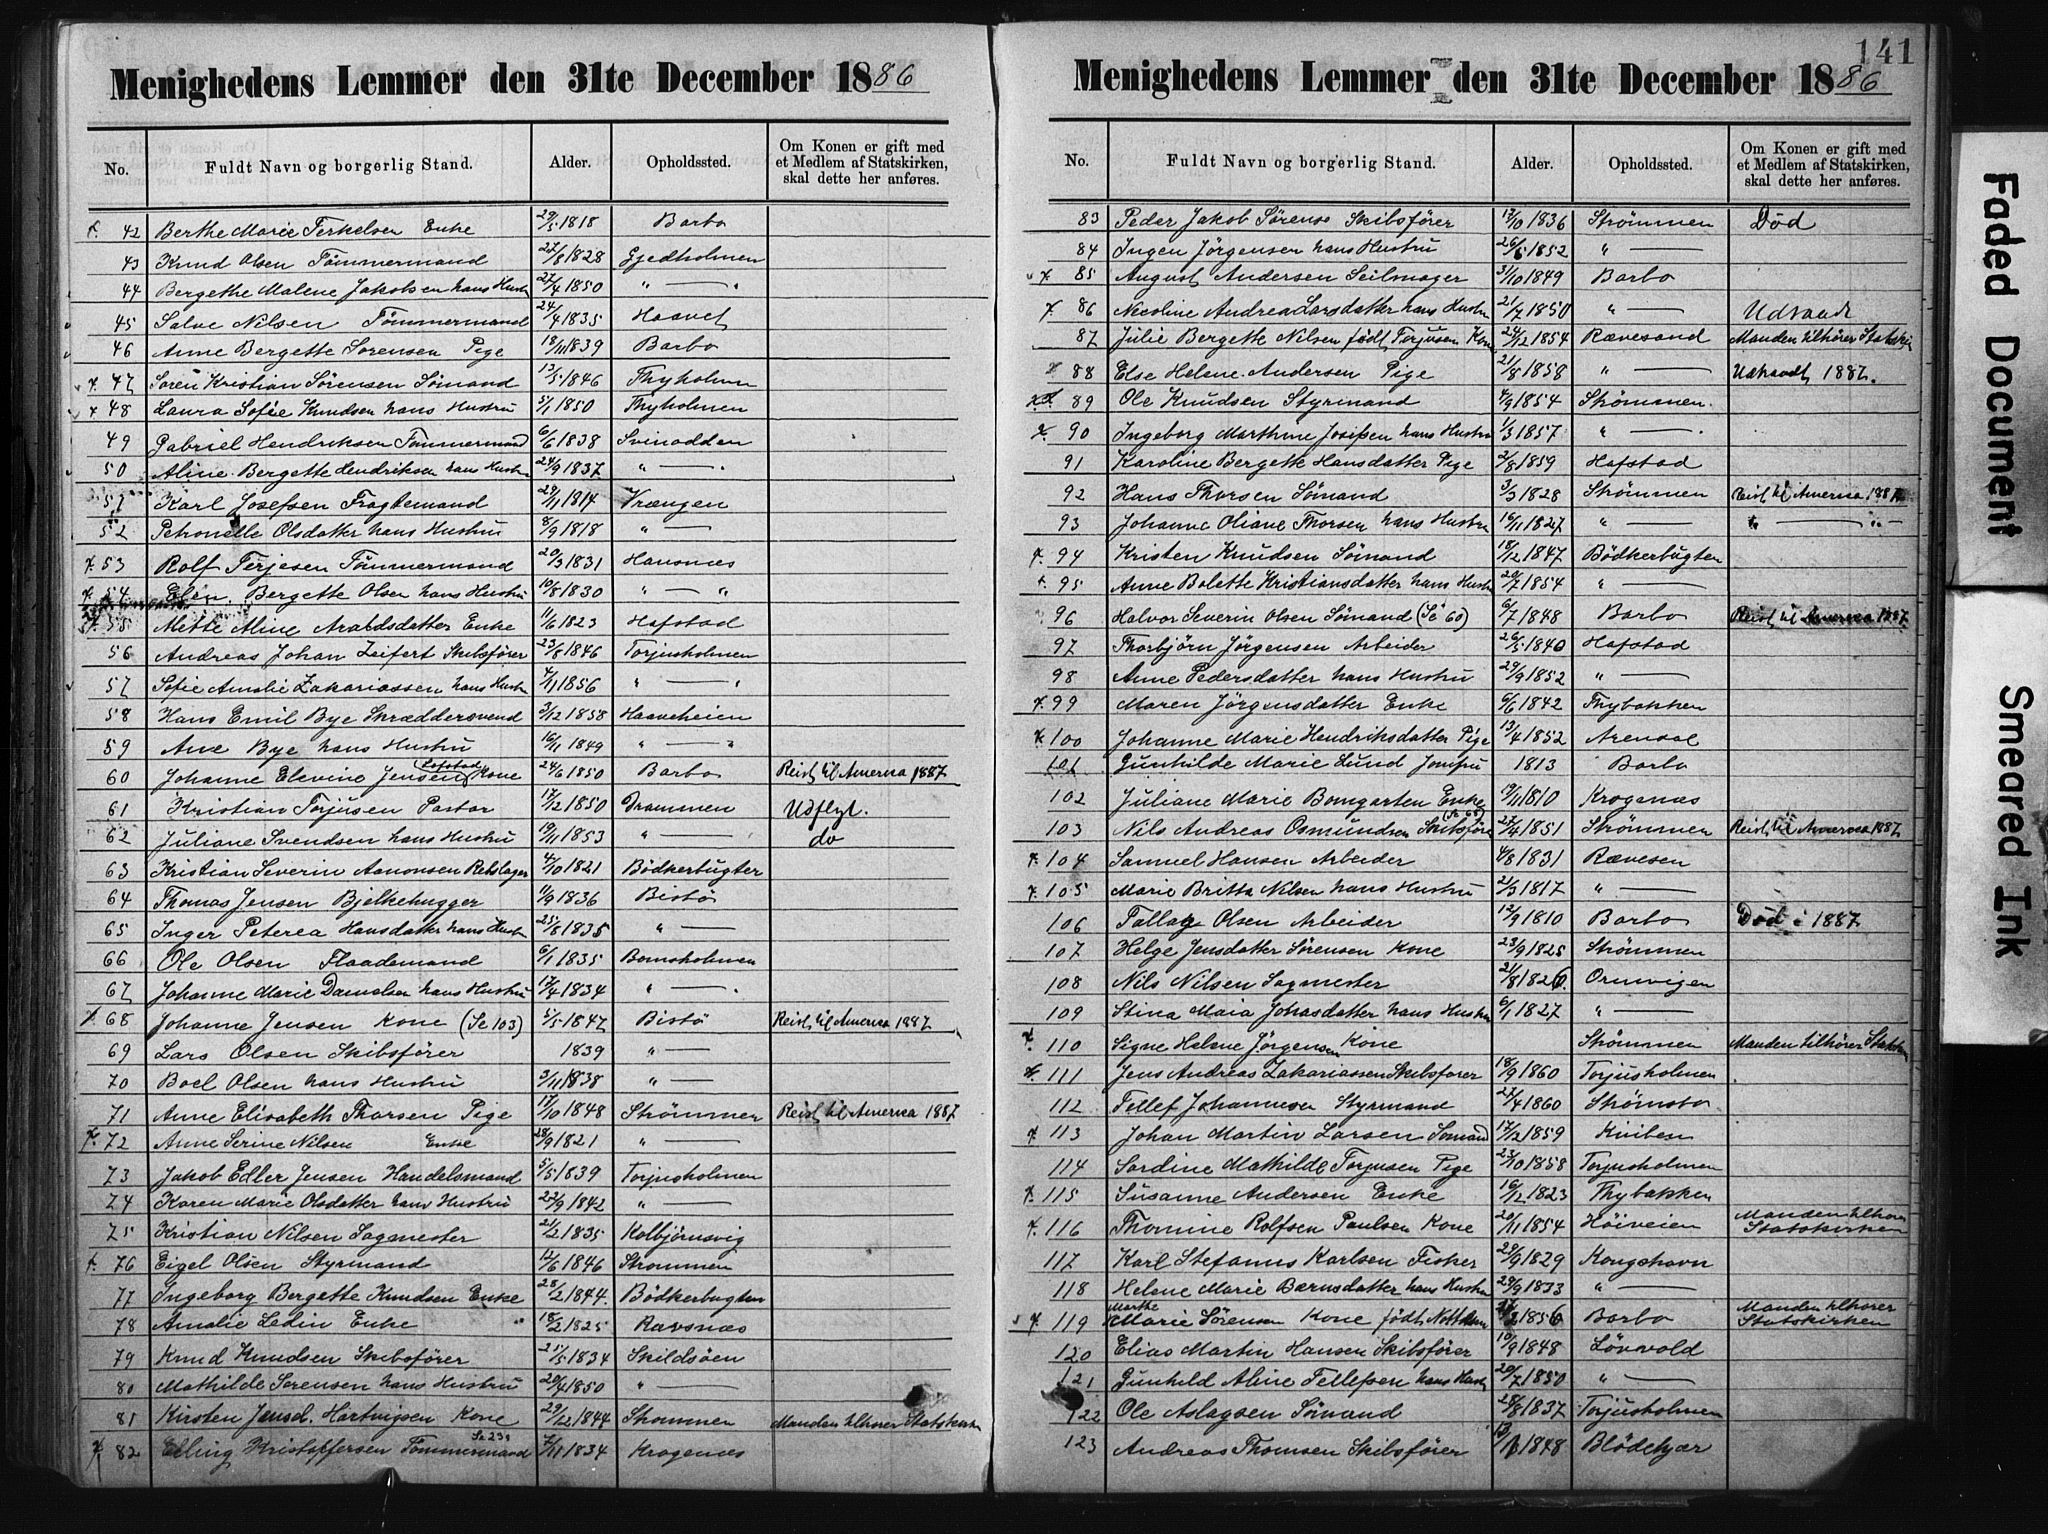 Menighedens Lemmer den 31te December 1886
No. Fuldt Navn og borgerlig Stand. Alder. Opholdssted. Om Konen er gift med et Medlem af Statskirken, skal dette her anføres.
42 Berthe Marie Terkelsen Enke 29/5 1818 Barbo
43 Knud Olsen Tømmermand 27/8 1828 Gjedholmen
44 Bergethe Malene Jakobsen hans Hustru 27/4 1850 " — "
45 Salve Nilsen Tømmermand 24/4 1835 Haavet
46 Anne Bergette Sørensen Pige 18/11 1839 Barbo
47 Søren Kristian Sørensen Sømand 13/5 1846 Thyholmen
48 Laura Sofie Knudsen hans Hustru 5/1 1850 Thyholmen
49 Gabriel Hendriksen Tømmermand 6/6 1838 Svinodden
50 Aline Bergette Hendriksen hans Hustru 24/9 1837 " — "
51 Karl Josefsen Fragtemand 29/1 1814 Vrængen
52 Petronelle Olsdatter hans Hustru 8/9 1818 " —
53 Rolf Terjesen Tømmermand 20/3 1831 Hansnæs
54 Elen Bergette Olsen hans Hustru 10/8 1830 " — "
55 Mette Aline Enke 11/6 1823 Hafstad
56 Andreas Johan Zeifert Skibsfører 23/8 1846 Torjusholmen
57 Sofie Amalie Zakariassen hans Hustru 4/11 1856 " — "
58 Hans Emil Bye Skræddersvend 3/12 1858 Haaveheien
59 Ane Bye hans Hustru 16/11 1849 " — "
60 Johanne Elevine Jensen Kone 24/6 1850 Barbo Reist til America 1887
61 Kristian Torjusen Pastor 17/12 1850 Drammen Udflyt.
62 Juliane Svendsen hans Hustru 19/11 1853 " — do
63 Kristian Severin Aanonsen Rebslager 4/10 1821 Bødkerbugten
64 Thomas Jensen Bjelkehugger 11/9 1836 Bistø
65 Inger Peterea Hansdatter hans Hustru 25/8 1835 " —
66 Ole Olsen Flaademand 6/1 1835 Bomsholmen
67 Johanne Marie Danielsen hans Hustru 17/4 1834 " — "
68 Johanne Jensen Kone (Se 103) 5/5 1847 Bistø Reist til America 1887
69 Lars Olsen Skibsfører 1839 " —
70 Boel Olsen hans Hustru 3/11 1838 " —
71 Anne Elisabeth Thorsen Pige 17/10 1848 Strømmen Reist til America 1887
72 Anne Serine Nilsen Enke 28/9 1821 " —
73 Jakob Edler Jensen Handelsmand 5/5 1839 Torjusholmen
74 Karen Marie Olsdatter hans Hustru 22/9 1842 " —
75 Kristian Nilsen Sagmester 21/2 1835 Kolbjørnsvig
76 Eigel Olsen Styrmand 12/6 1846 Strømmen
77 Ingeborg Bergette Knudsen Enke 28/2 1844. Bødkerbugten
78 Amalie Ledin Enke 18/2 1825 Ravsnæs
79 Knud Knudsen Skibsfører 21/5 1834 Skildsøen
80 Mathilde Sørensen hans Hustru 20/4 1850 " —
81 Kirsten Jensd. Hartvigsen Kone 29/12 1844 Strømmen Manden tilhører Statskirken
82 Elling Kristoffersen Tømmermand 7/11 1834 Krogenæs
141
Menighedens Lemmer den 31te December 1886
No. Fuldt Navn og borgerlig Stand. Alder. Opholdssted. Om Konen er gift med et Medlem af Statskirken, skal dette her anføres.
83 Peder Jakob Sørense Skibsfører 17/10 1836 Strømmen Død
84 Ingen Jörgensen hans Hustru 26/6 1852 " —
85 August Andersen Seilmager 31/10 1849 Barbo
86 Nicoline Andrea Larsdatter hans Hustru 21/7 1850 " — Udtraadt
87 Julie Bergette Nilsen født Torjusen Kone 24/12 1854 Rævesand Manden tilhører Statskir
88 Else Helene Andersen Pige 21/8 1858 " — Udtraadt 1887.
89 Ole Knudsen Styrmand 4/9 1854 Strømmen.
90 Ingeborg Marthine Josefsen hans Hustru 1/3 1857 " —
91 Karoline Bergette Hansdatter Pige 2/8 1859 Hafstad
92 Hans Thorsen Sømand 3/3 1828 Strømmen Reist til America 1887
93 Johanne Oliane Thorsen hans Hustru 16/11 1827 " — " — " —
94 Kristen Knudsen Sømand 18/12 1847 Bødkerbugten
95 Anne Bolette Kristiansdatter hans Hustru 20/7 1854 " —
96 Halvor Severin Olsen Sømand (Se 60) 6/7 1848 Barbo Reist til America 1887
97 Thorbjørn Jørgensen Arbeider 26/5 1840 Hafstad
98 Anne Pedersdatter hans Hustru 29/9 1852 " —
99 Maren Jörgensdatter Enke 6/6 1842 Thybakken
100 Johanne Marie Hendriksdatter Pige 13/4 1852 Arendal
101 Gunhilde Marie Lund Jomfru 1813 Barbo
102 Juliane Marie Bomgarten Enke 19/11 1810 Krogenæs
103 Nils Andreas Osmundsen Skibsfører (Se 68) 27/4 1851 Strømmen Reist til America 1887
104 Samuel Hansen Arbeider 4/8 1831 Rævesen
105 Marie Britta Nilsen hans Hustru 21/3 1817 " —
106 Tallag Olsen Arbeider 12/9 1810 Barbo Død i 1887
107 Helge Jensdatter Sørensen Kone 23/9 1825 Strømmen
108 Nils Nilsen Sagmester 21/8 1826 Ormvigen
109 Stina Maia Johasdatter hans Hustru 6/1 1827 " —
110 Signe Helene Jørgensen Kone Strømmen Manden tilhører Statskir
111 Jens Andreas Zakariassen Skibsfører 18/9 1860 Torjusholmen
112 Tellef Johannesen Styrmand 27/4 1860 Strømsbo
113 Johan Martin Larsen Sømand 17/12 1859 Kviben
114 Sardine Mathilde Torjusen Pige 23/10 1858 Torjusholmen
115 Susanne Andersen Enke 16/12 1823 Thybakken
116 Thomine Rolfsen Paulsen Kone 20/11 1854 Høiveien Manden tilhører Statskirken
117 Karl Stefanus Karlsen Fisker 29/9 1829 Kongshavn
118 Helene Marie Børnsdatter hans Hustru 29/9 1833 " —
119 Marthe Marie Sørensen Kone født 1856 Barbo Manden tilhører Statskirken
120 Elias Martin Hansen Skibsfører 10/9 1848 Løvvold
121 Gunhild Aline Tellefsen hans Hustru 20/7 1850 " —
122 Ole Aslagsen Sømand 28/8 1837 Torjusholmen
123 Andreas Thomsen Skibsfører 1848 Blødekjær
Faded Document
Smeared Ink